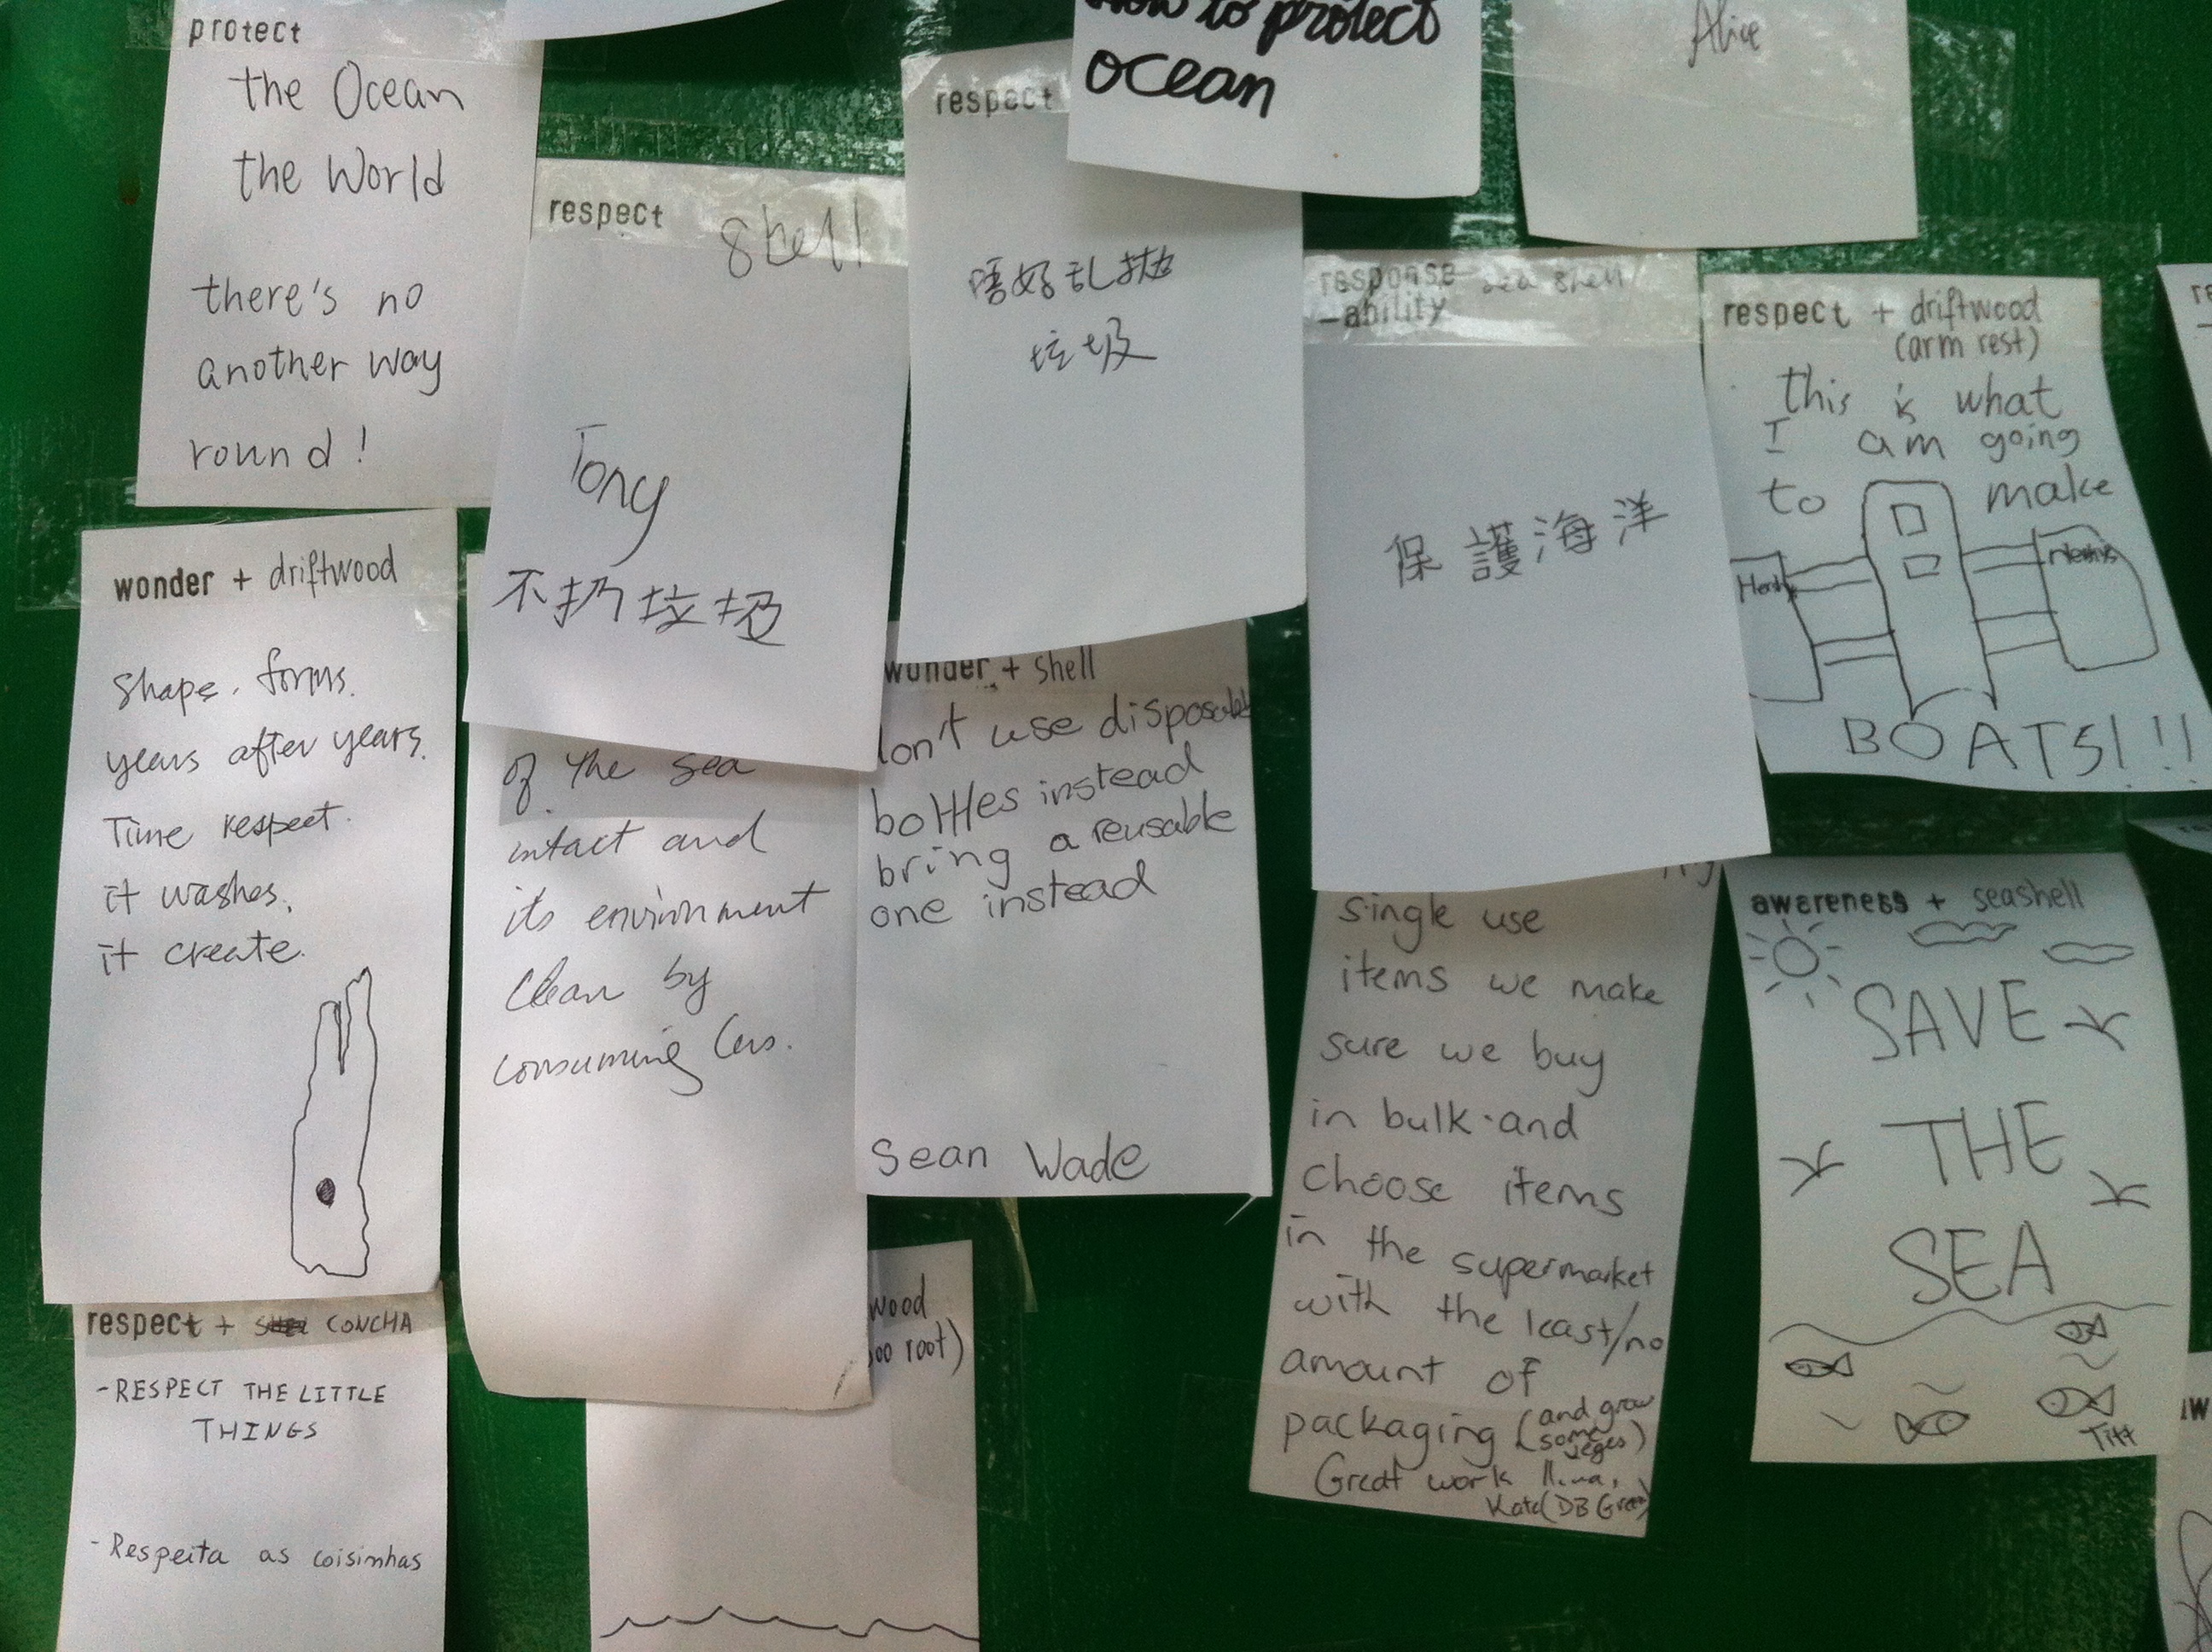 protect
the Ocean
the World
there's no
another way
round!
respect shell
Tony
不扔垃圾
respect
唔好乱拋
垃圾
How to protect
ocean
Alice
response sea shell
-ability
保護海洋
respect + driftwood
(arm rest)
this is what
I am going
to make
BOATS!!!
wonder + driftwood
Shape. forms.
years after years.
Time respect.
it washes.
it create.
of the sea
intact and
its environment
clean by
consuming less.
wonder + shell
don't use disposable
bottles instead
bring a reusable
one instead
Sean Wade
single use
items we make
sure we buy
in bulk and
choose items
in the supermarket
with the least/no
amount of
packaging (and grow
some veges)
Great work
Kate (DB Green)
awareness + seashell
SAVE
THE
SEA
respect + CONCHA
-RESPECT THE LITTLE
THINGS
-Respeita as coisinhas
wood
root)